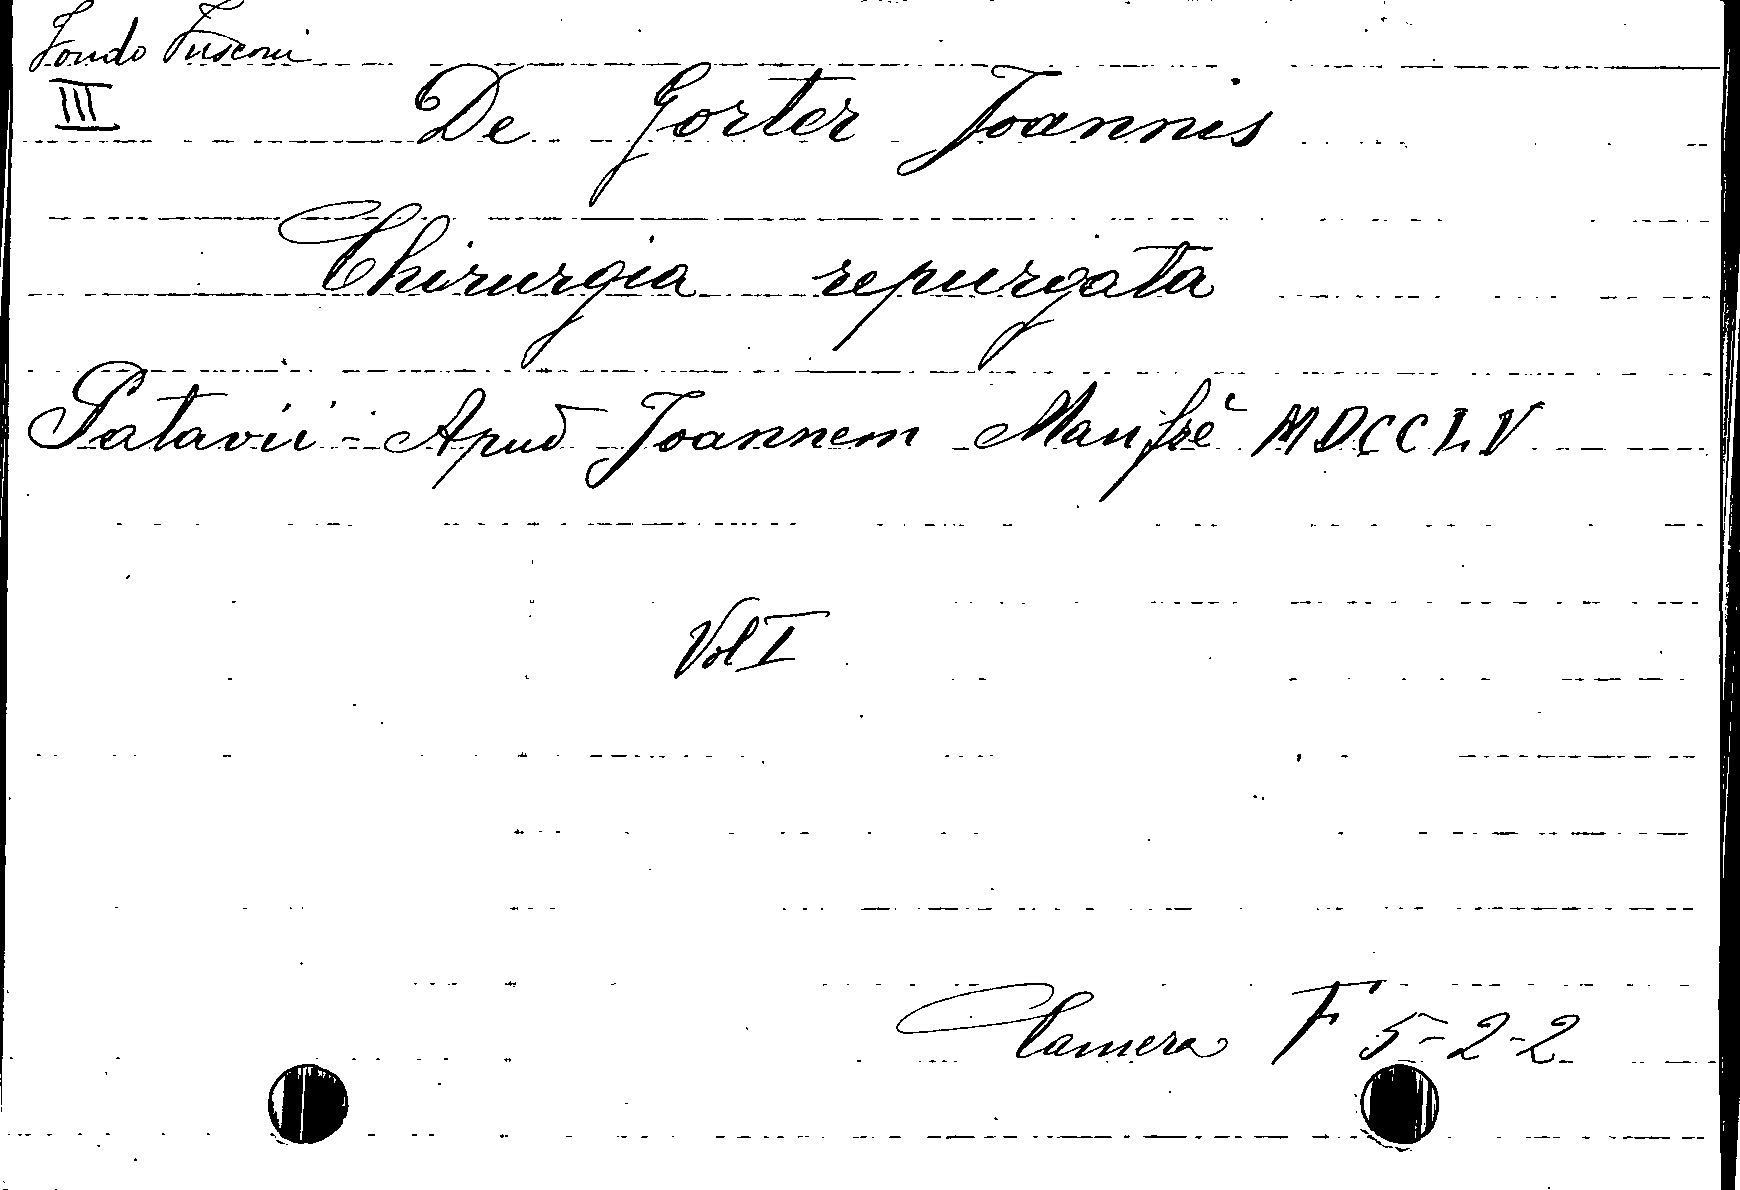 Fondo Fusconi
III
De Gorter Joannis
Chirurgia repurgata
Patavii - Apud Joannem Manfrè MDCCLV
Vol I
Camera F 5-2-2